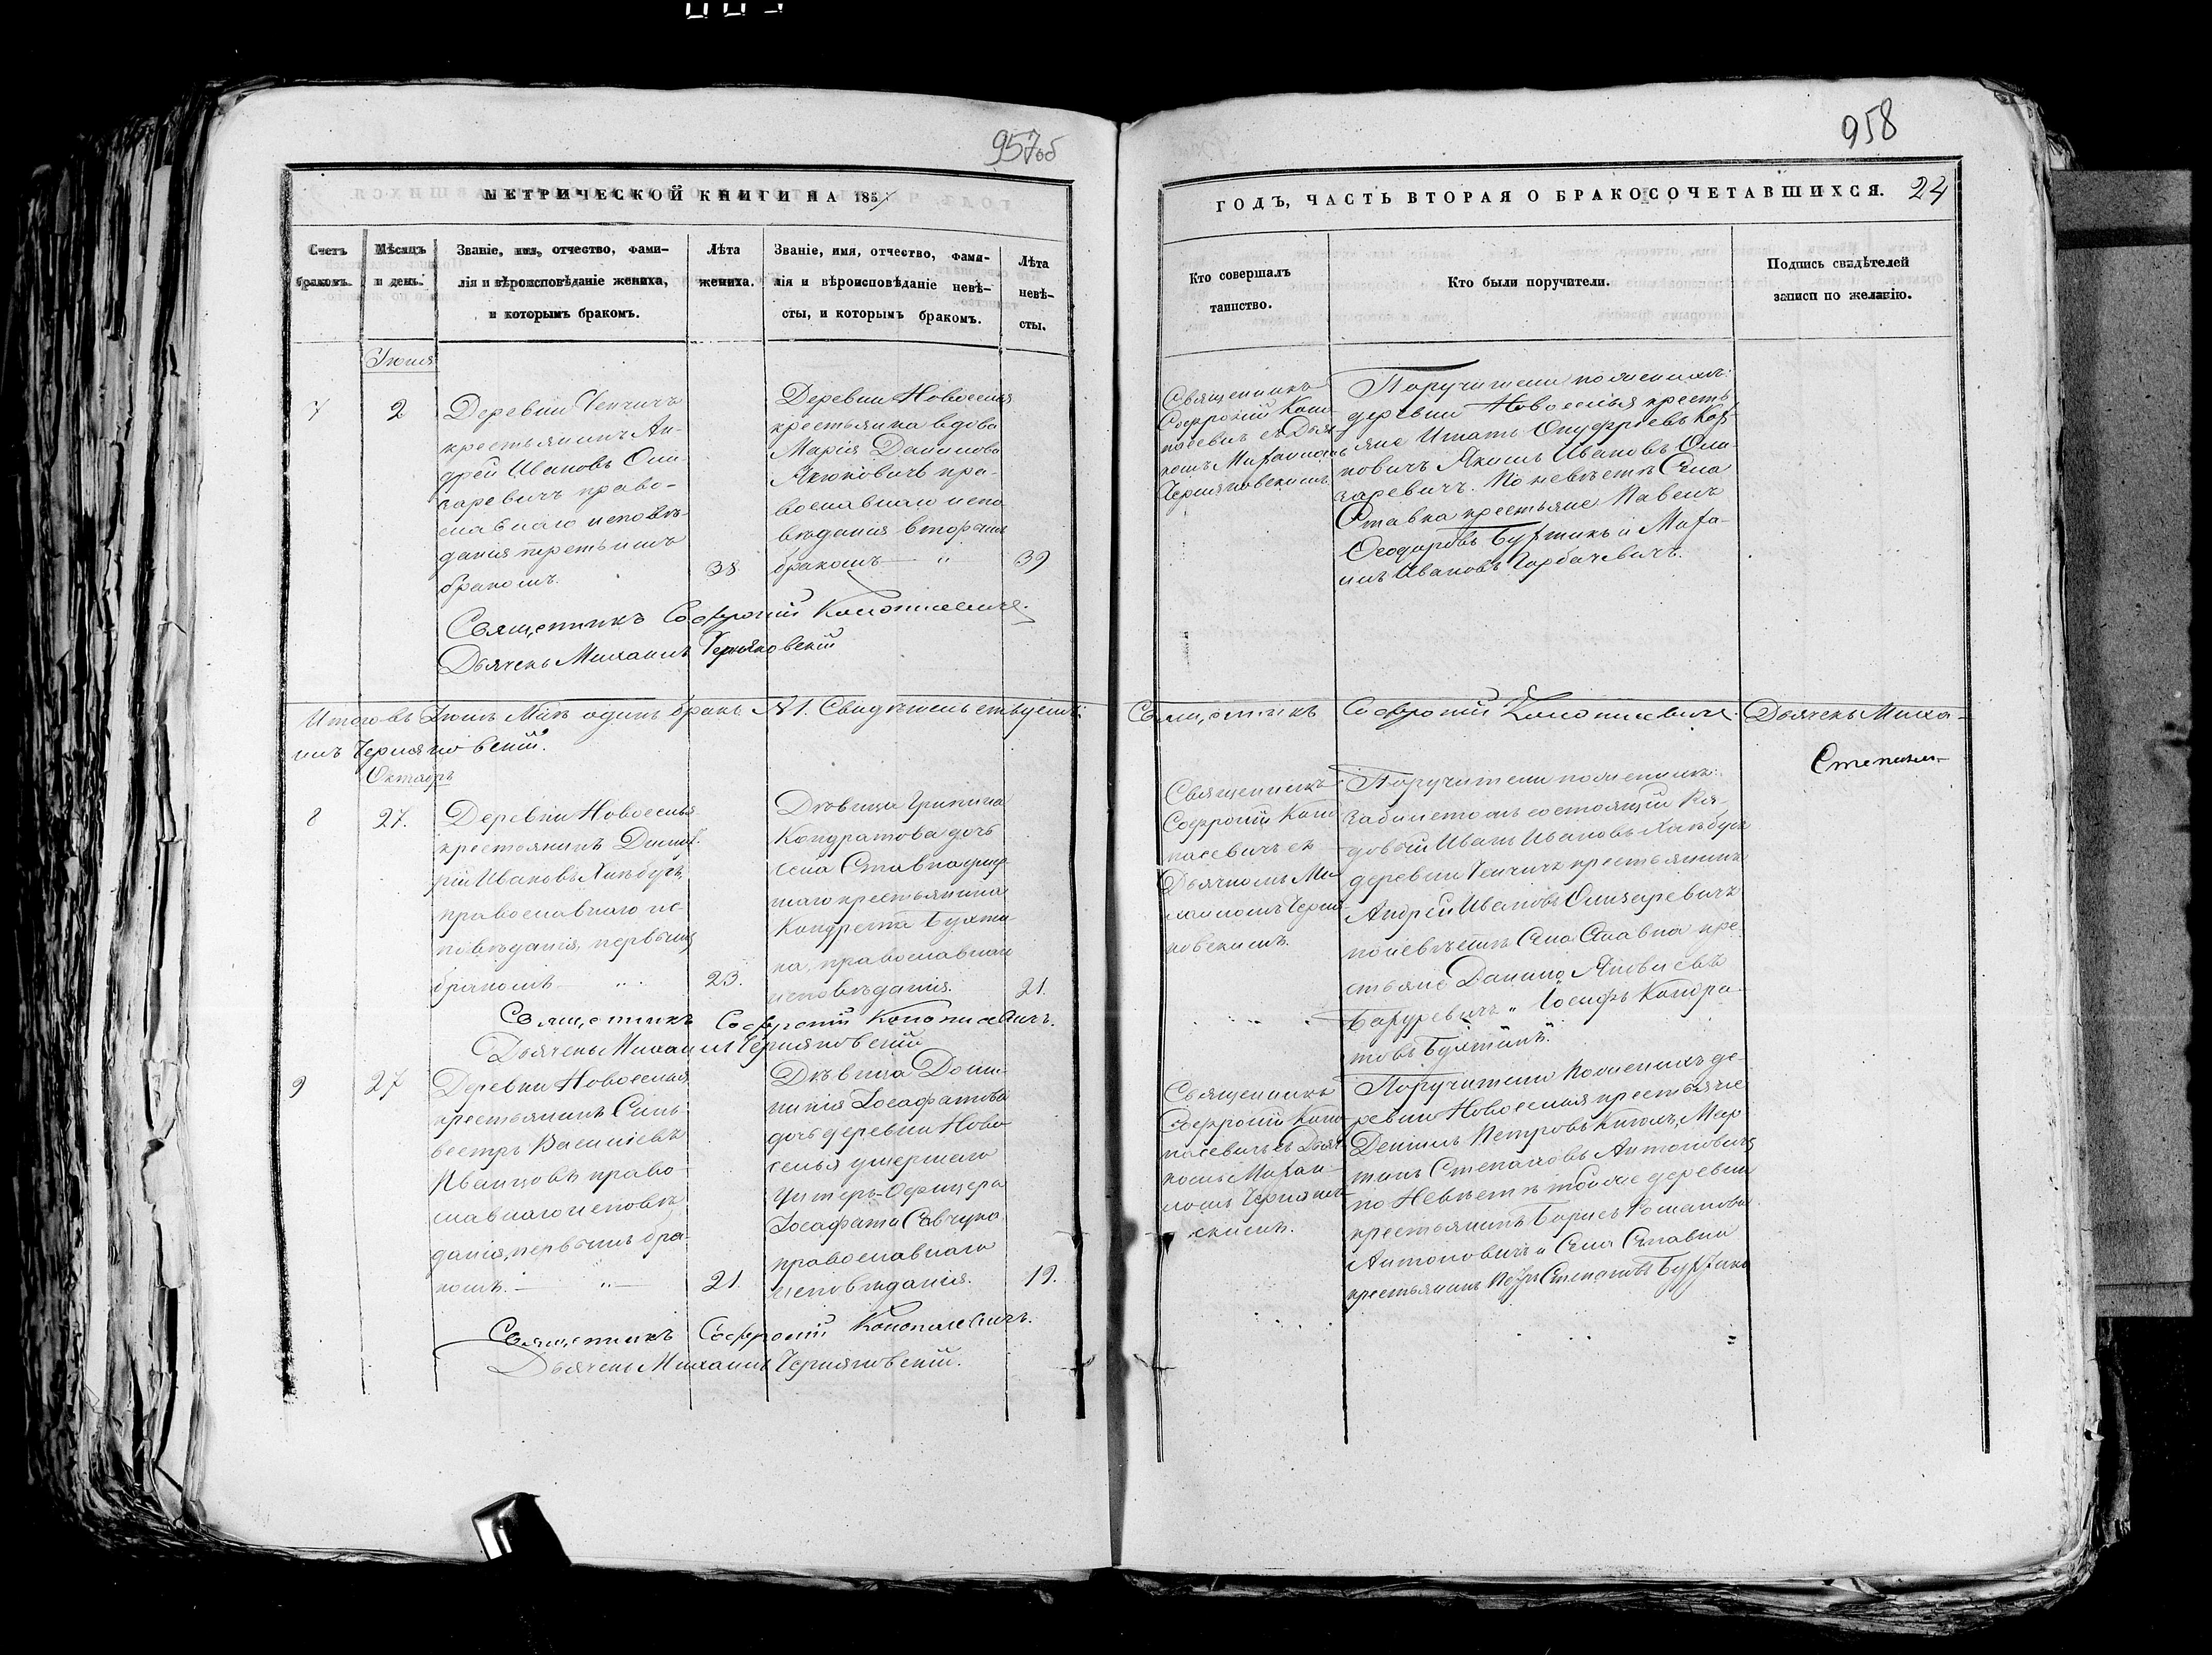 957об
МЕТРИЧЕСКОЙ КНИГИ НА 1857
Счетъ браковъ.
Мѣсяцъ и день.
Званіе, имя, отчество, фами-
лія и вѣроисповѣданіе жениха,
и которымъ бракомъ.
Лѣта
жениха.
Званіе, имя, отчество, фами-
лія и вѣроисповѣданіе невѣ-
сты, и которымъ бракомъ.
Лѣта
невѣ-
сты.
7
2
Деревни
крестьянинъ Ан-
дрей Ивановъ Оли-
заревичъ право-
славнаго исповѣ-
данія третьимъ
бракомъ.
38
Деревни Новоселья
крестьянка вдова
Марія Данилова
пра-
вославнаго испо-
вѣданія вторымъ
бракомъ
39
Священникъ Софроній Конопасевичъ.
Дьячекъ Михаилъ Черняковскій
Итого въ одинъ бракъ №1. Свидѣтельствуемъ:
илъ Черняковскій.
Октябрь
8
27.
Деревни Новоселья
крестьянинъ Димит-
рій Ивановъ Хлѣбусъ,
православнаго ис-
повѣданія, первымъ
бракомъ
23.
Дѣвица
Кондратова дочь
села Ставка
крестьянина
Кондрата Бухти-
ка, православнаго
исповѣданія.
21.
Священникъ Софроній Конопасевичъ.
Дьячекъ Михаилъ Черняковскій
9
27
Деревни Новоселья
крестьянинъ Силь-
вестръ Василіевъ
Иванцовъ право-
славнаго исповѣ-
данія, первымъ бра-
комъ.
21.
Дѣвица Доми-
никія Іосафатова
дочь деревни Ново-
селья умершаго
Унтеръ-Офицера
Іосафата Савчука
православнаго
исповѣданія.
19.
Священникъ Софроній Конопасевичъ.
Дьячекъ Михаилъ Черняковскій.
958
ГОДЪ, ЧАСТЬ ВТОРАЯ О БРАКОСОЧЕТАВШИХСЯ. 24
Кто совершалъ
таинство.
Кто были поручители.
Подпись свидѣтелей
записи по желанію.
Священникъ
Софроній Коно-
пасевичъ съ Дьяч-
комъ Михаиломъ
Черняковскимъ
Поручители по женихѣ:
деревни Новоселья кресть-
яне Игнатъ Онуфріевъ
Якимъ Ивановъ Оли-
заревичъ. По невѣстѣ Села
Ставка крестьяне Павелъ
Ѳеодоровъ Бухтикъ и Миха-
илъ Ивановъ Горбачевичъ.
Священникъ Софроній Конопасевичъ. Дьячекъ Миха-
Степанъ
Священникъ
Софроній Коно-
пасевичъ съ
Дьячкомъ Ми-
хаиломъ Черня-
ковскимъ.
Поручители по женихѣ:
состоящій Ря-
довый Иванъ Ивановъ Хлѣбусъ
деревни крестьянинъ
Андрей Ивановъ Олизаревичъ
по невѣстѣ Села Ставка кре-
стьяне Данило Яковлевъ
Іосифъ Кондра-
товъ Бухтикъ.
Священникъ
Софроній Коно-
пасевичъ съ Дьяч-
комъ Михаи-
ломъ Черняков-
скимъ.
Поручители по женихѣ де-
ревни Новоселья крестьяне
Петровъ Мар-
тинъ Степановъ Антоновичъ
по Невѣстѣ тойже деревни
крестьянинъ Борисъ Романовъ
Антоновичъ и Села Ставка
крестьянинъ Петръ Степановъ Бухтикъ